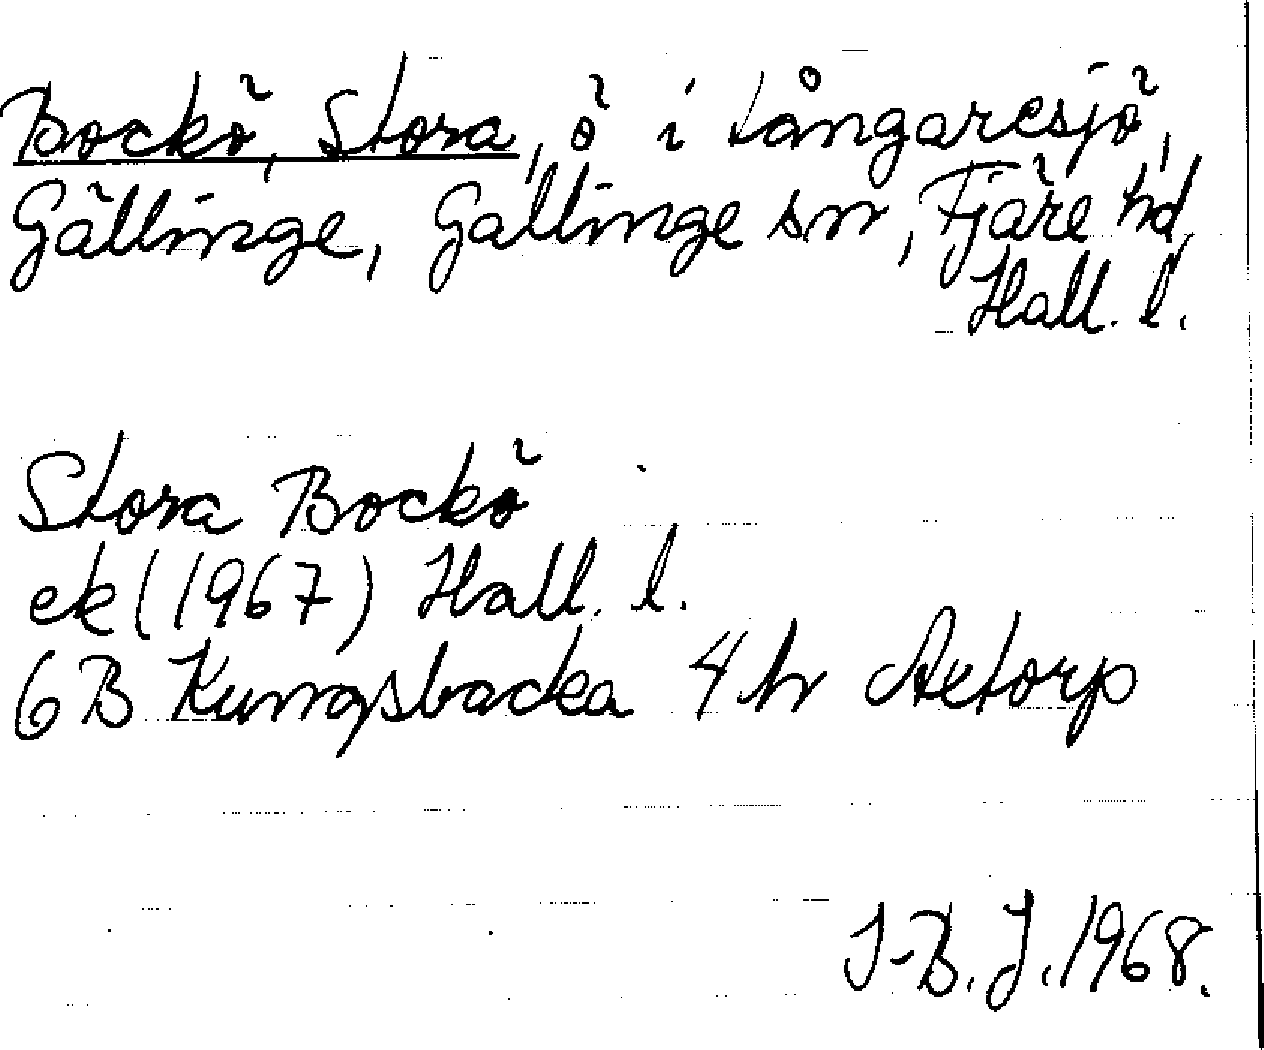 Bockö, Stora, ö i tångaresjö,
Gällinge, Gällinge sn, Fjäre hd,
Hall. l.
Stora Bockö
ek (1967) Hall. l.
6B Kungsbacka 4 h Aetorp
J-B. J. 1968.